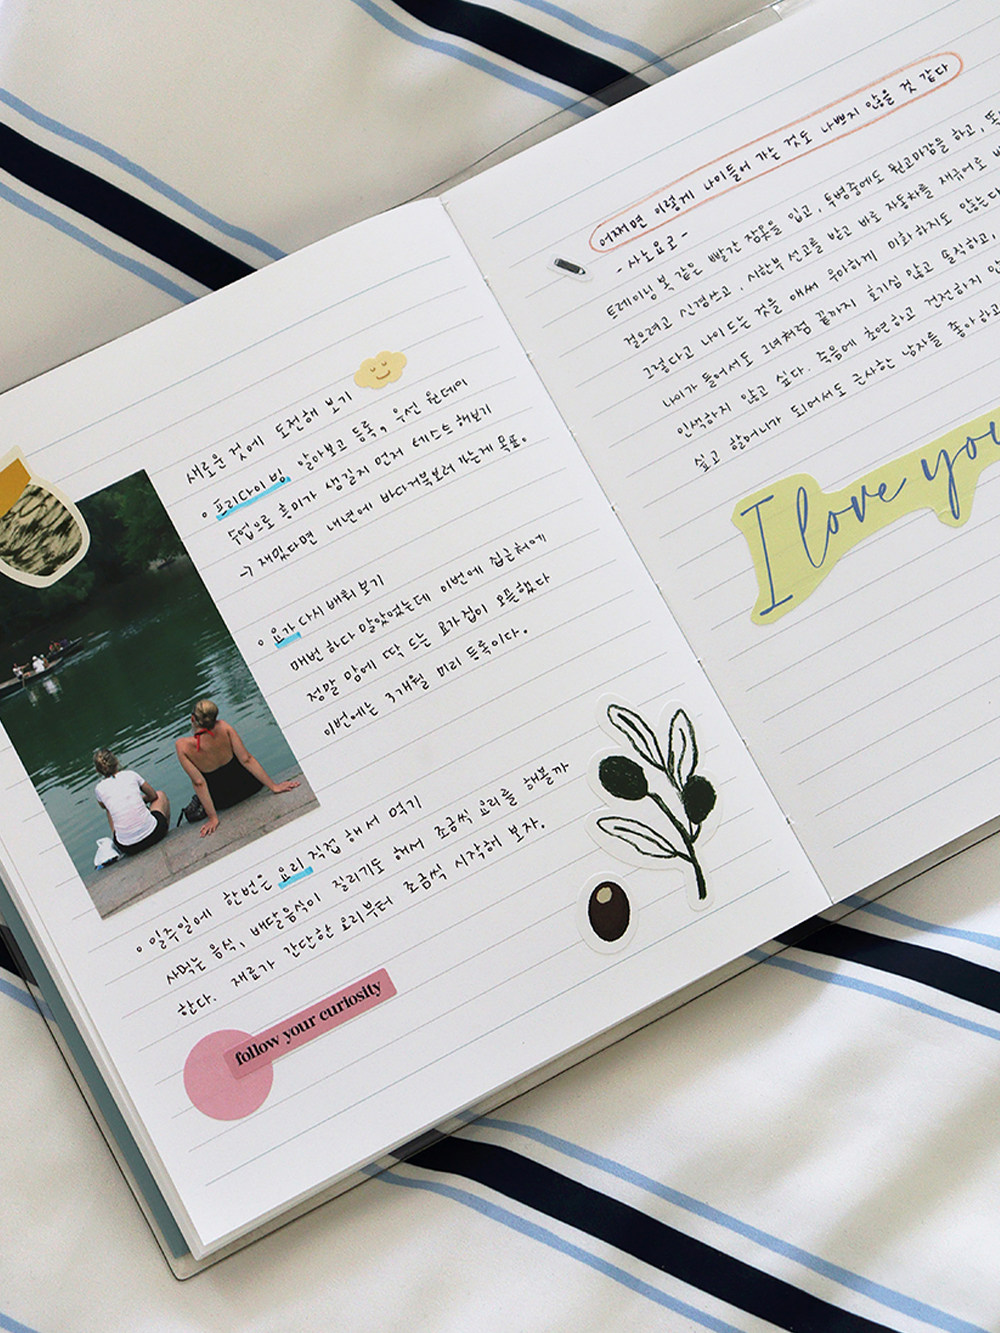 새로운 것에 도전해 보기
◦ 프리다이빙 알아보고 등록, 우선 원데이
수업으로 흥미가 생길지 먼저 테스트 해보기
→ 재밌다면 내년에 바다거북보러 가는게 목표.
◦ 요가 다시 배워보기
매번 하다 말았었는데 이번에 집근처에
정말 맘에 딱 드는 요가집이 오픈했다
이번에는 3개월 미리 등록이다.
◦ 일주일에 한번은 요리 직접 해서 먹기
사먹는 음식, 배달음식이 질리기도 해서 조금씩 요리를 해볼까
한다. 재료가 간단한 요리부터 조금씩 시작해 보자.
follow your curiosity
어쩌면 이렇게 나이들어 가는 것도 나쁘지 않을 것 같다
- 사노요코 -
트레이닝 복 같은 빨간 잠옷을 입고, 투병중에도 원고마감을 하고, 똑
걸으려고 신경쓰고, 시한부 선고를 받고 바로 자동차를 재규어로 바
그렇다고 나이드는 것을 애써 우아하게 미화하지도 않는다
나이가 들어서도 그녀처럼 끝까지 호기심 많고 솔직하고,
인색하지 않고 싶다. 죽음에 초연하고 건전하지 않
싶고 할머니가 되어서도 근사한 남자를 좋아하고
I love you